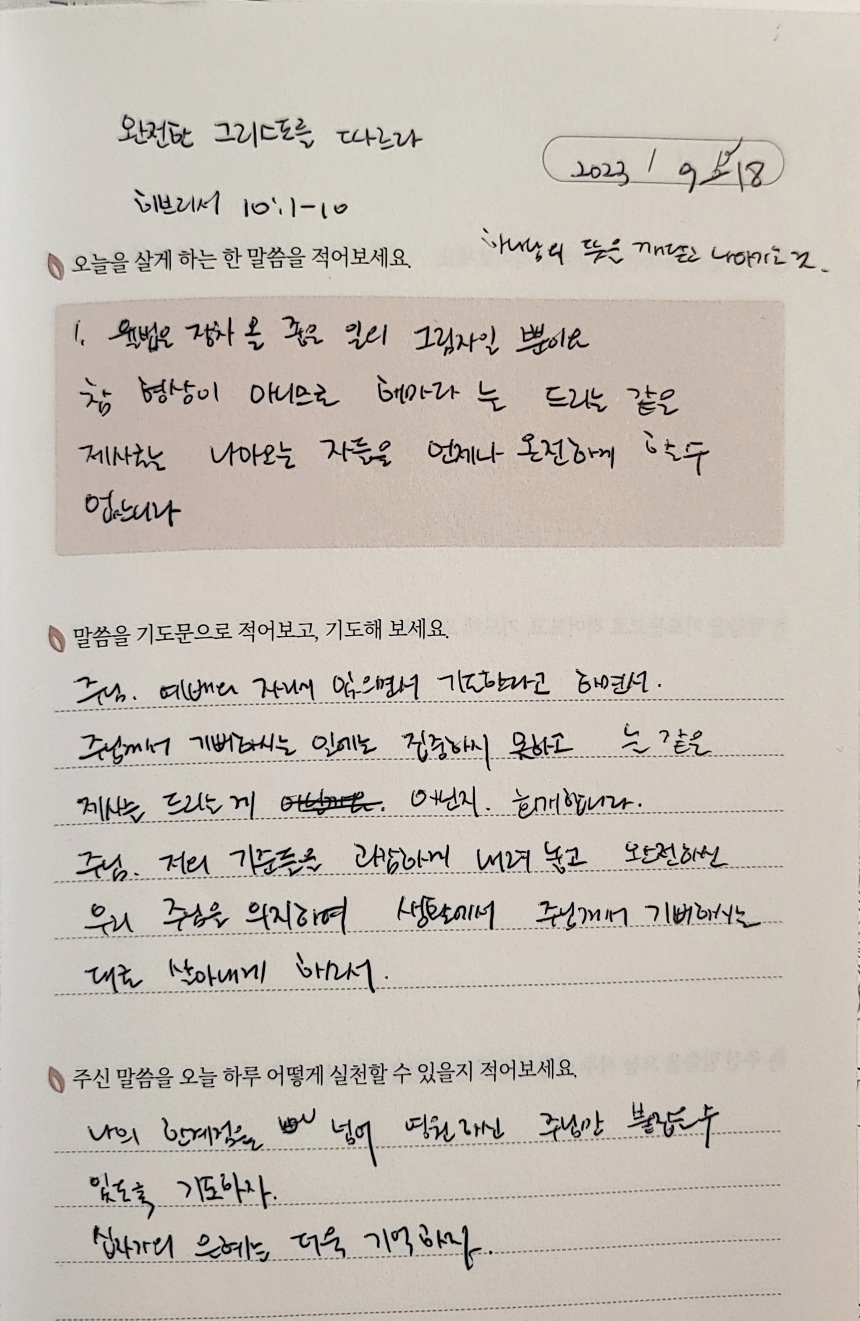 완전한 그리스도를 따르라
2023 / 9 18
히브리서 10:1-10
하나님의 뜻은 깨닫고 나아가는 것.
오늘을 살게 하는 한 말씀을 적어보세요.
1. 율법은 장차 올 좋은 일의 그림자일 뿐이요
참 형상이 아니므로 해마다 늘 드리는 같은
제사로는 나아오는 자들을 언제나 온전하게 할 수
없느니라
말씀을 기도문으로 적어보고, 기도해 보세요.
주님. 예배의 자리에 있으면서 기도한다고 하면서.
주님께서 기뻐하시는 일에는 집중하지 못하고 늘 같은
제사를 드리는게 아닌지. 회개합니다.
주님. 저의 기준들을 과감하게 내려놓고 완전하신
우리 주님을 의지하여 생활에서 주님께서 기뻐하시는
대로 살아내게 하소서.
주신 말씀을 오늘 하루 어떻게 실천할 수 있을지 적어보세요.
나의 한계점을 넘어 영원하신 주님만 붙잡을 수
있도록 기도하자.
십자가의 은혜를 더욱 기억하자.